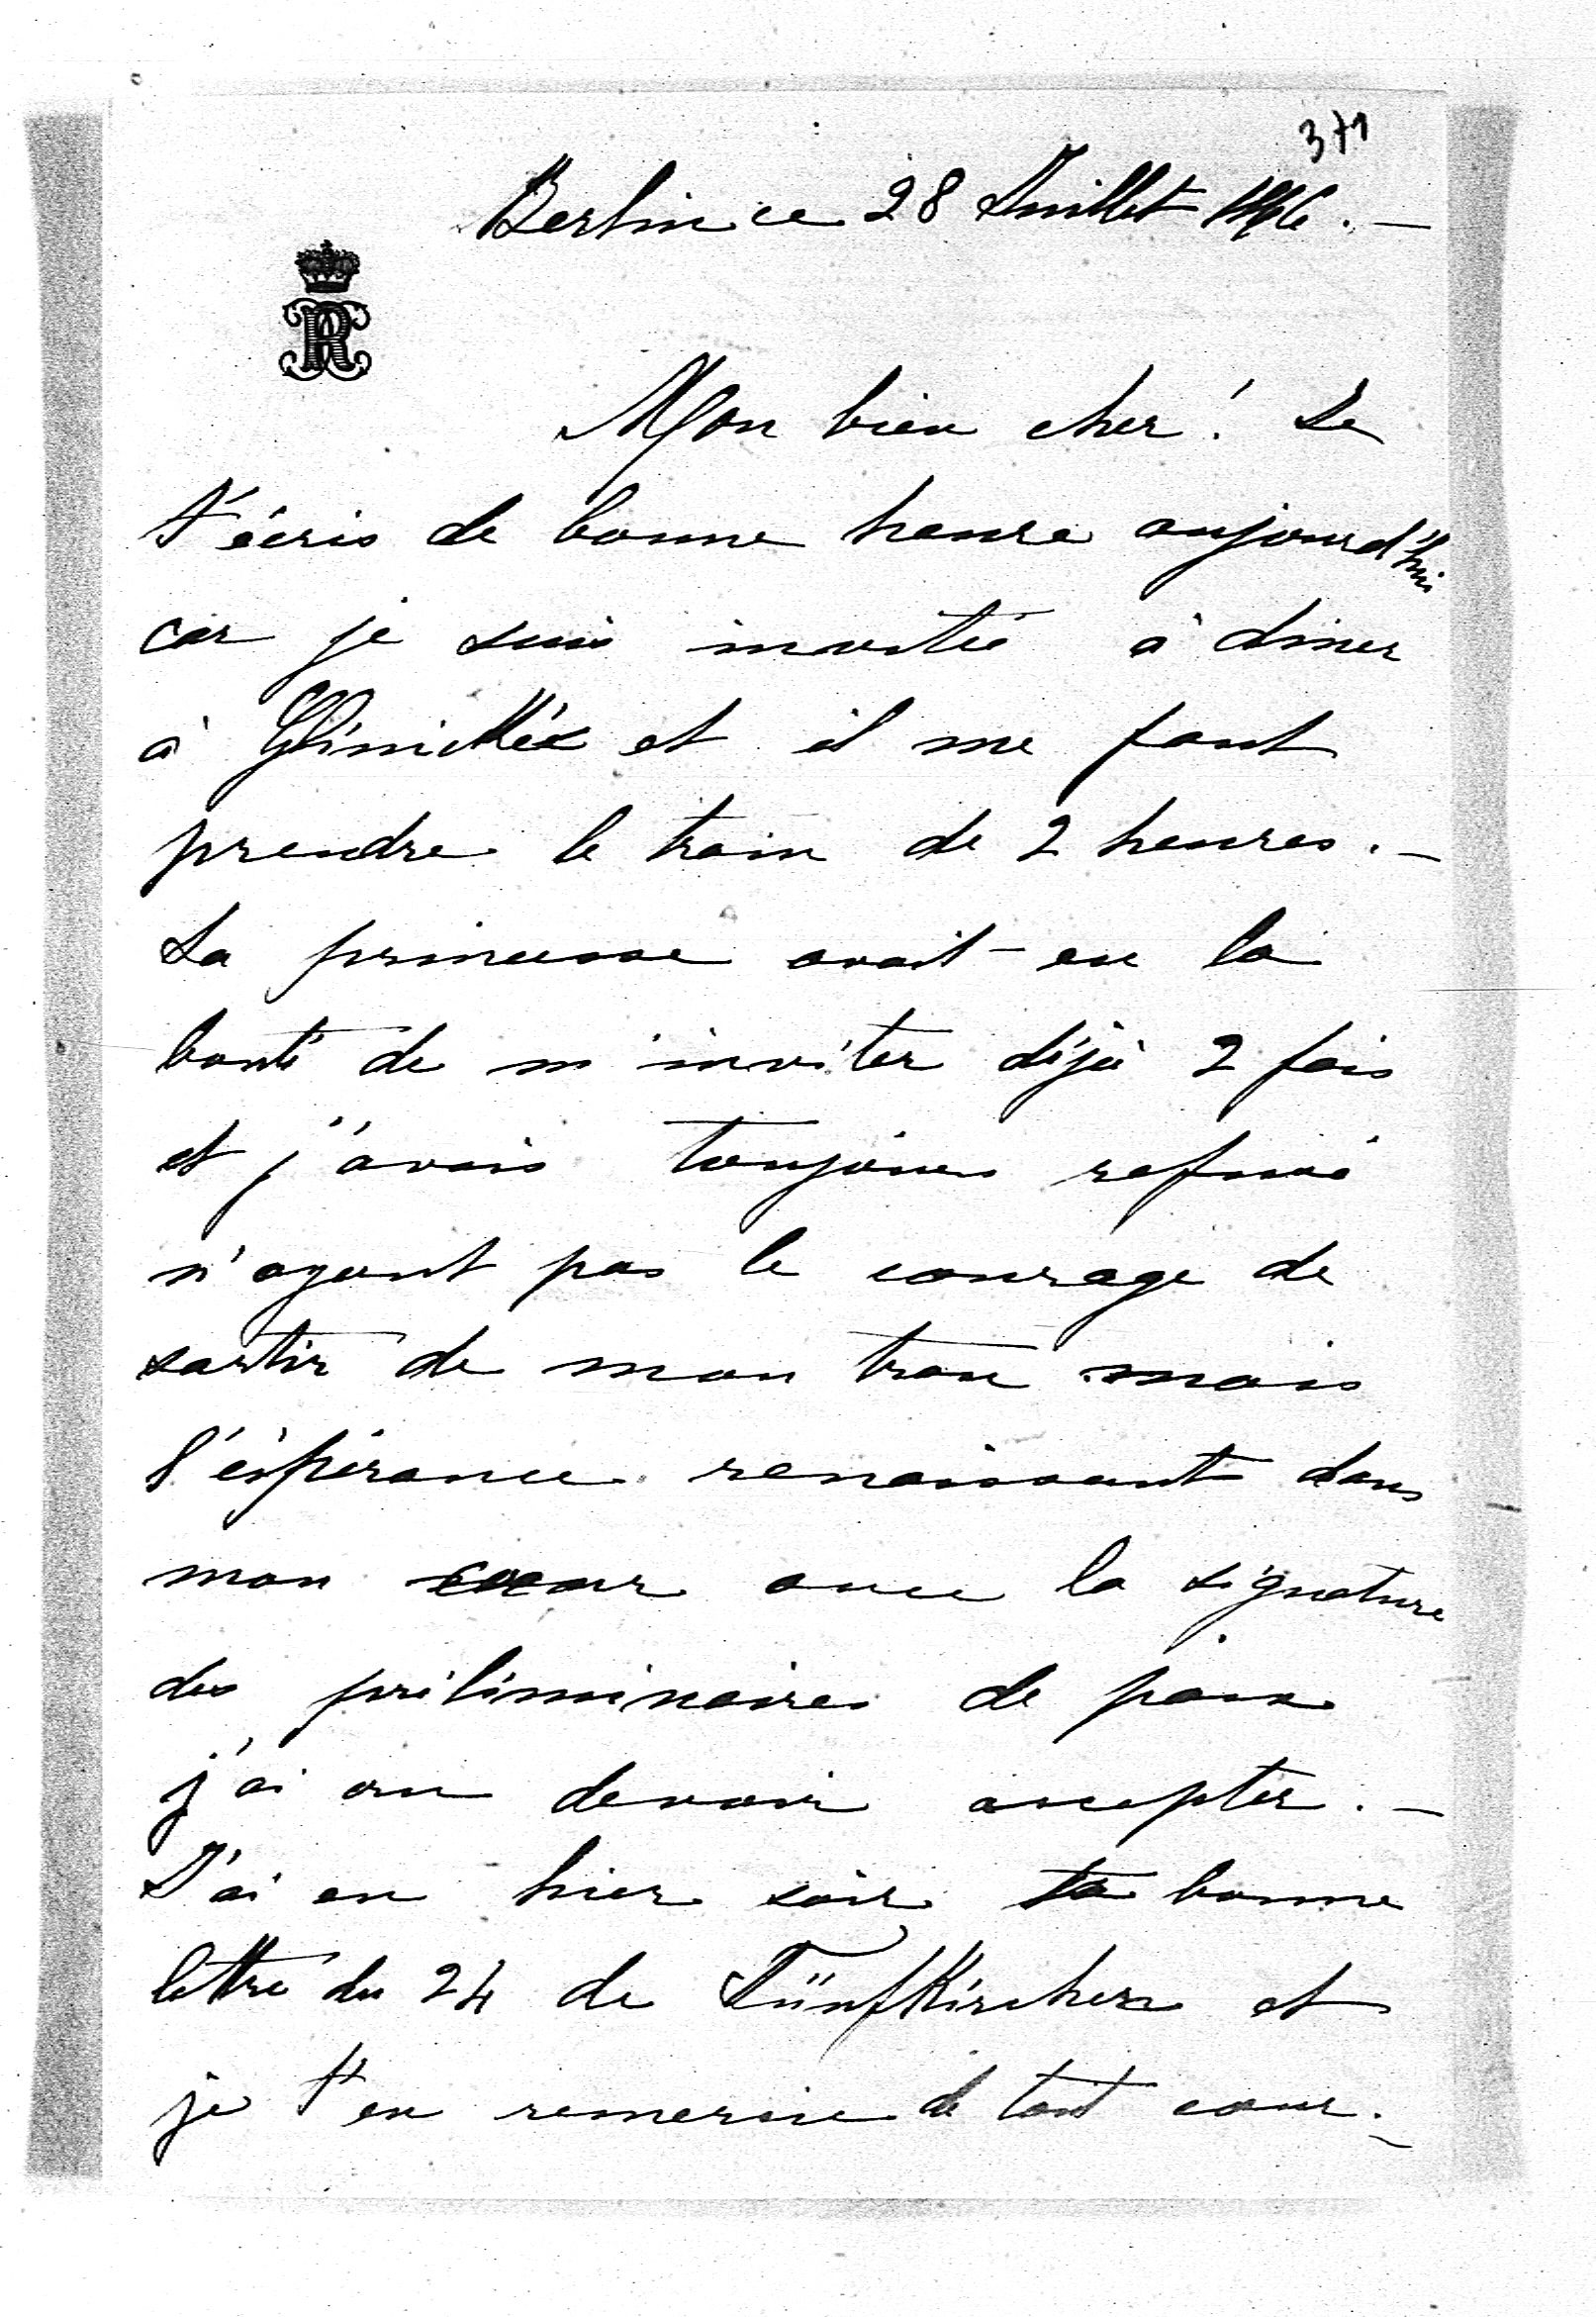 371
Berlin ce 28 Juillet 1866. —
R
Mon bien cher! Je
t'écris de bonne heure aujourd'hui
car je suis invitée à diner
à Glinicke et il me faut
prendre le train de 2 heures. —
La princesse avait eu la
bonté de m'inviter déjà 2 fois
et j'avais toujours refusé
n'ayant pas le courage de
sortir de mon trou mais
l'éspérance renaissant dans
mon coeur avec la signature
des préliminaires de paix
j'ai cru devoir accepter. —
J'ai eu hier soir ta bonne
lettre du 24 de Fünfkirchen et
je t'en remercie de tout cœur. —